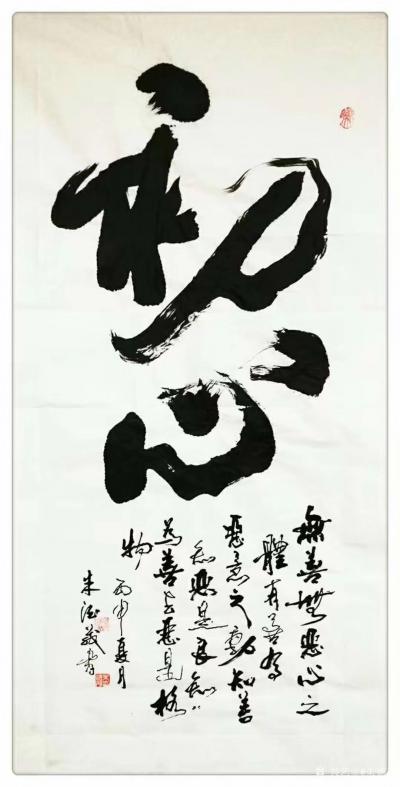 初心
無善無惡心之
體有善有
惡意之動知善
知惡是良知
為善去惡是格
物
丙申夏月
朱